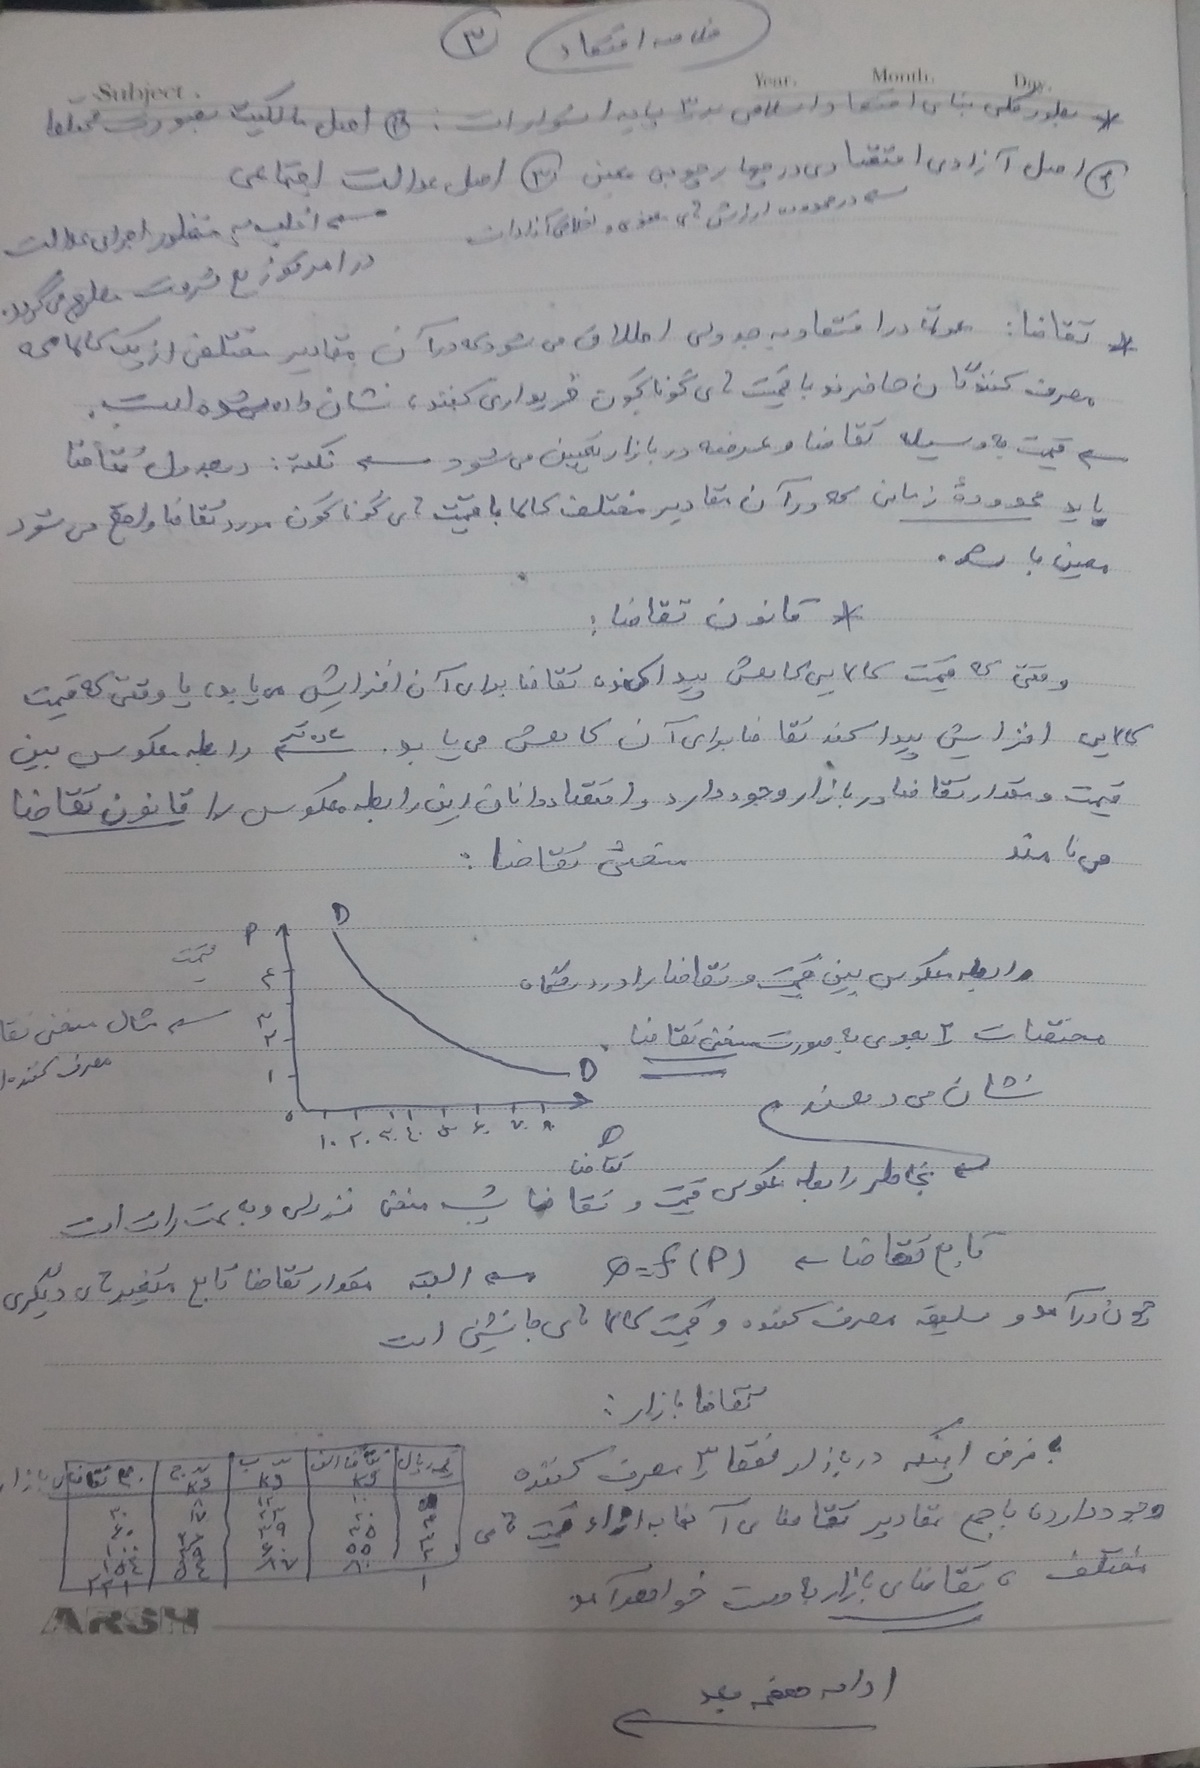 خلاصه اقتصاد ۳
Subject. Year. Month. Day.
* بطور کلی بنای اقتصاد اسلامی بر ۳ پایه استوار است: ① اصل مالکیت بصورت مختلط
② اصل آزادی اقتصادی در چهارچوبی معین ③ اصل عدالت اجتماعی
در محدوده ارزش های معنوی و اخلاقی آزاد است
به منظور اجرای عدالت
در امر توزیع ثروت مطرح می گردد.
* تقاضا: عموماً در اقتصاد به جدولی اطلاق می شود که در آن مقادیر مختلفی از یک کالا که
مصرف کنندگان حاضرند با قیمت های گوناگون خریداری کنند، نشان داده شده است.
قیمت به وسیله تقاضا و عرضه در بازار تعیین می شود نکته: در جدول تقاضا
باید محدودهٔ زمانی که در آن مقادیر مختلف کالا با قیمت های گوناگون مورد تقاضا واقع می شود
معین باشد.
* قانون تقاضا:
وقتی که قیمت کالایی کاهش پیدا کند تقاضا برای آن افزایش می یابد، یا وقتی که قیمت
کالایی افزایش پیدا کند تقاضا برای آن کاهش می یابد. رابطه معکوس بین
قیمت و مقدار تقاضا در بازار وجود دارد و اقتصاددانان این رابطه معکوس را قانون تقاضا
می نامند
منحنی تقاضا:
P D
قیمت
۴
۳
۲
۱
۰ ۱۰ ۲۰ ۳۰ ۴۰ ۵۰ ۶۰ ۷۰ ۸۰
D
تقاضا
مثال منحنی تقا
مصرف کننده
رابطه معکوس بین قیمت و تقاضا را در دستگاه
مختصات ۲ بعدی به صورت منحنی تقاضا
نشان می دهند
بخاطر رابطه عکوس قیمت و تقاضا شیب منحنی نزولی و به سمت راست است
تابع تقاضا = f(P) البته مقدار تقاضا تابع متغیرهای دیگری
چون درآمد و سلیقه مصرف کننده و قیمت کالا های جانشینی است
تقاضا بازار:
با فرض اینکه در بازار فقط ۳ مصرف کننده
وجود دارد، با جمع مقادیر تقاضای آنها به ازاء قیمت های
مختلف، تقاضای بازار به دست خواهد آمد
تقاضا الف kg ب kg ج kg تقاضای بازار
۱۰ ۱۲ ۸ ۳۰
۲۰ ۲۳ ۱۷ ۶۰
۳۵ ۳۹ ۲۶ ۱۰۰
۵۵ ۶۰ ۳۹ ۱۵۴
۸۰ ۸۷ ۵۴ ۲۲۱
ARSH
ادامه صفحه بعد